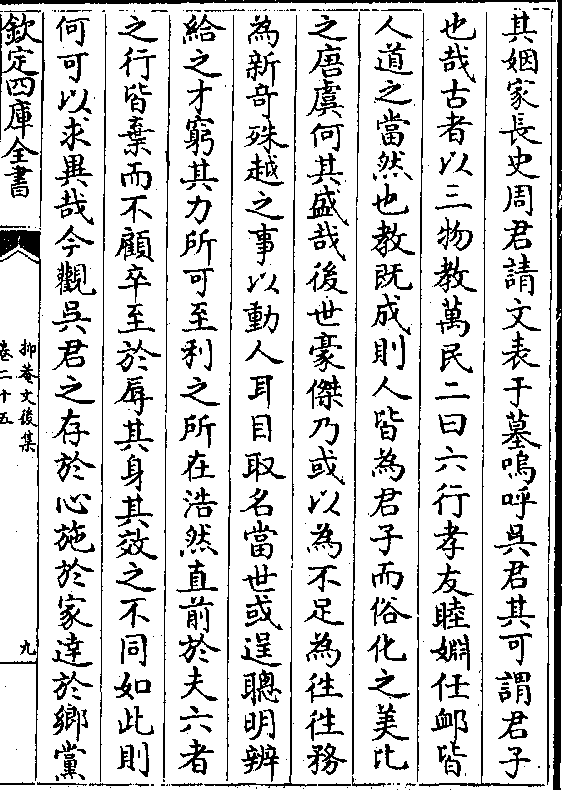 其姻家長史周君請文表于墓嗚呼吳君其可謂君子
也哉古者以三物教萬民二曰六行孝友睦婣任䘏皆
人道之當然也教既成則人皆為君子而俗化之美比
之唐虞何其盛哉後世豪傑乃或以為不足為徃徃務
為新奇殊越之事以動人耳目取名當世或逞聰明辨
給之才窮其力所可至利之所在浩然直前於夫六者
之行皆棄而不顧卒至於辱其身其效之不同如此則
何可以求異哉今觀吳君之存於心施於家達於鄉黨
欽定四庫全書
抑菴文後集
卷二十五
九